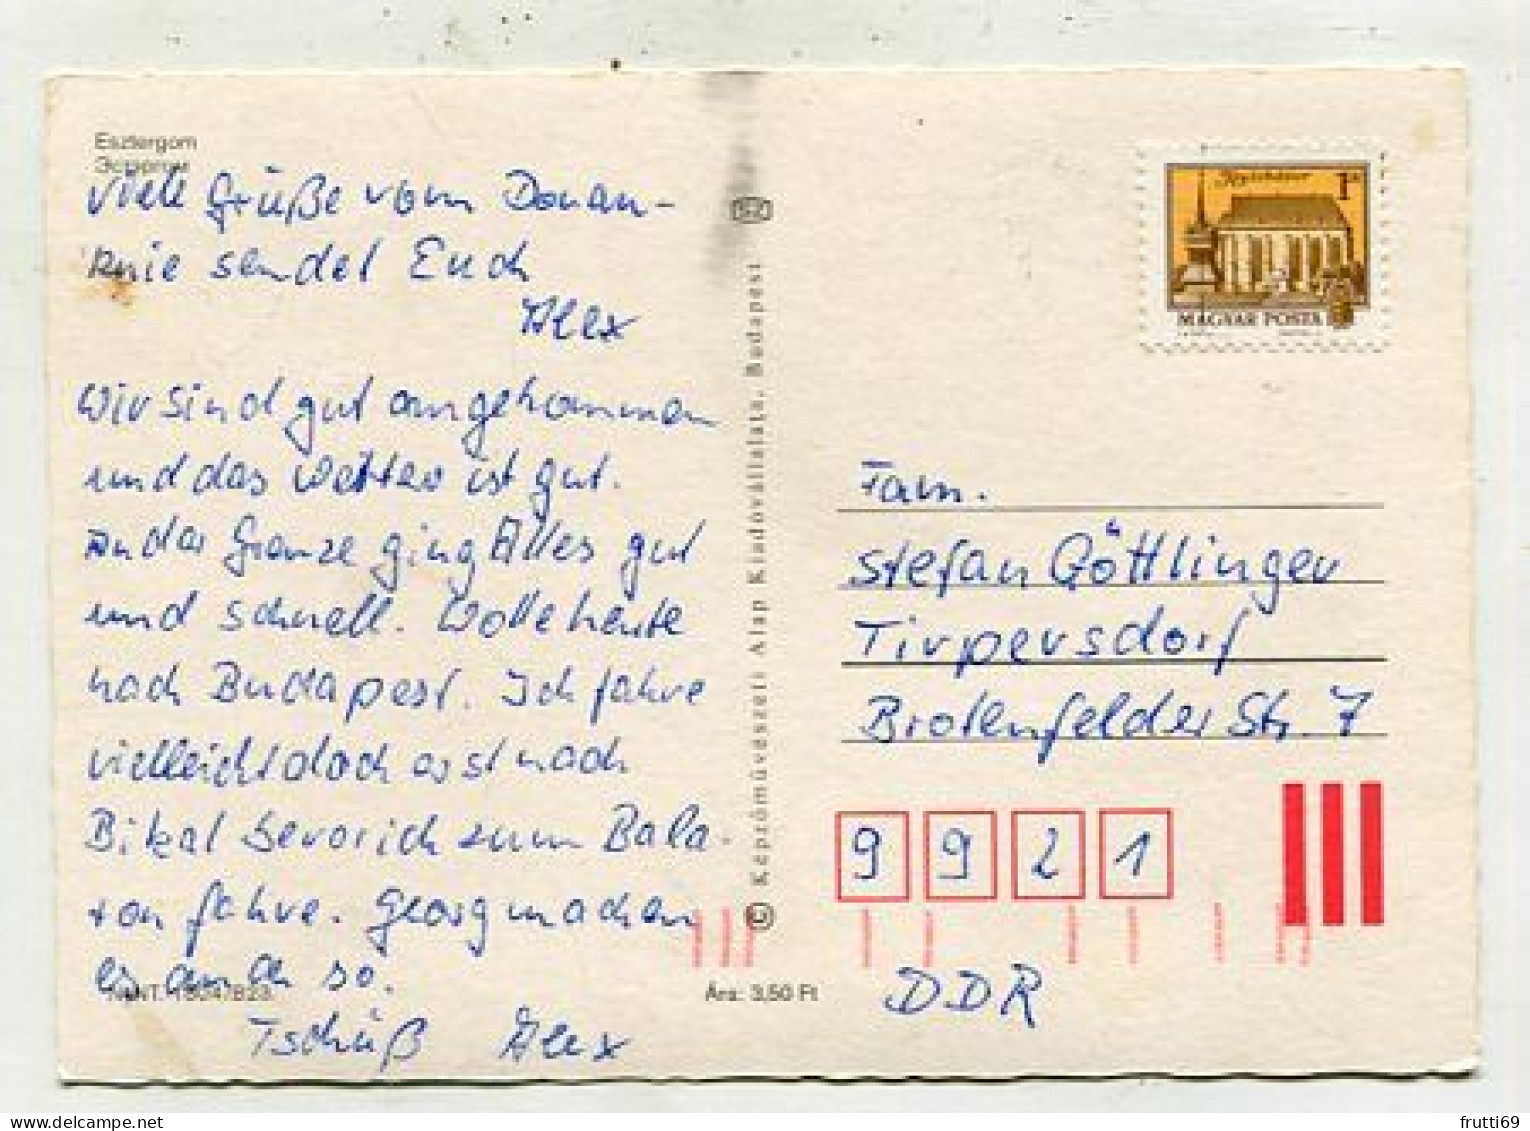 Esztergom
Эстергом
Viele Grüße vom Donau-
knie sendet Euch
Alex
Wir sind gut angekommen
und das Wetter ist gut.
An der Grenze ging Alles gut
und schnell. Wolle heute
nach Budapest. Ich fahre
vielleicht doch erst nach
Bikal bevor ich zum Bala-
ton fahre. Georg machen
es auch so.
Tschüß Alex
Ára: 3,50 Ft
© Képzőművészeti Alap Kiadóvállalata, Budapest
1
MAGYAR POSTA
Fam.
Stefan Göttlinger
Tirpersdorf
Brotenfelder Str. 7
9 9 2 1
DDR
frutti69